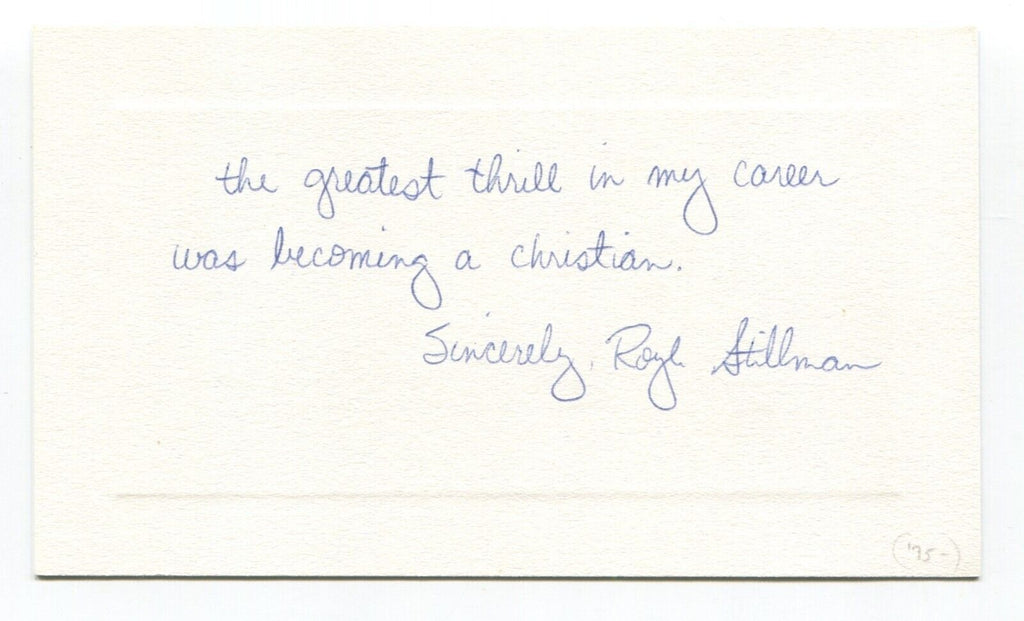 the greatest thrill in my career
was becoming a christian.
Sincerely, Royle Stillman
('75-)